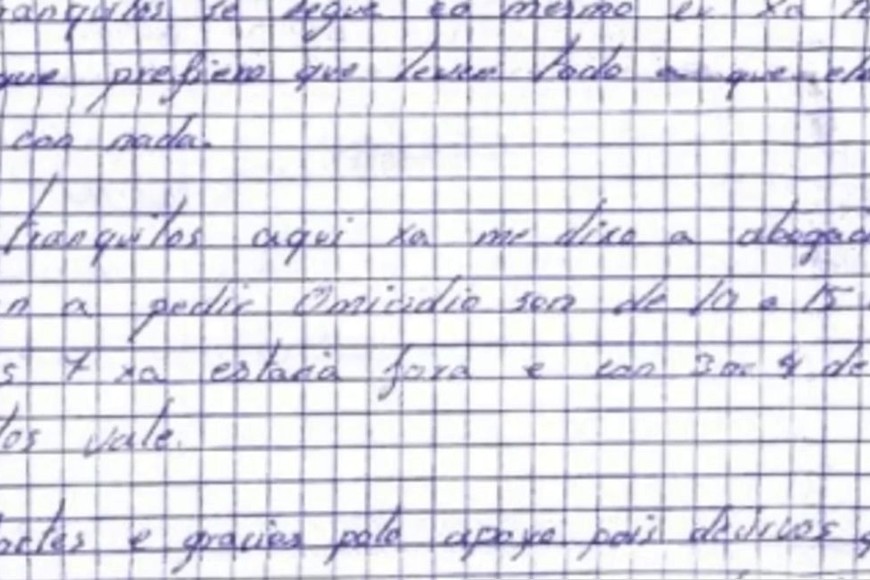 tranquilos se segue eo mesmo eu xa
que prefiero que leven todo a que
con nada.
tranquilos aqui xa me dixo a abogad
n a pedir Omicidio son de 10 a 15
s 7 xa estaria fora e con 3 ou 4 de
tos vale.
ortes e gracias polo apoyo pois decirvos